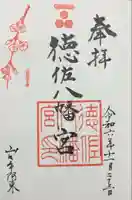 奉拝
徳佐八幡宮
令和六年十一月二十三日
徳佐八幡宮